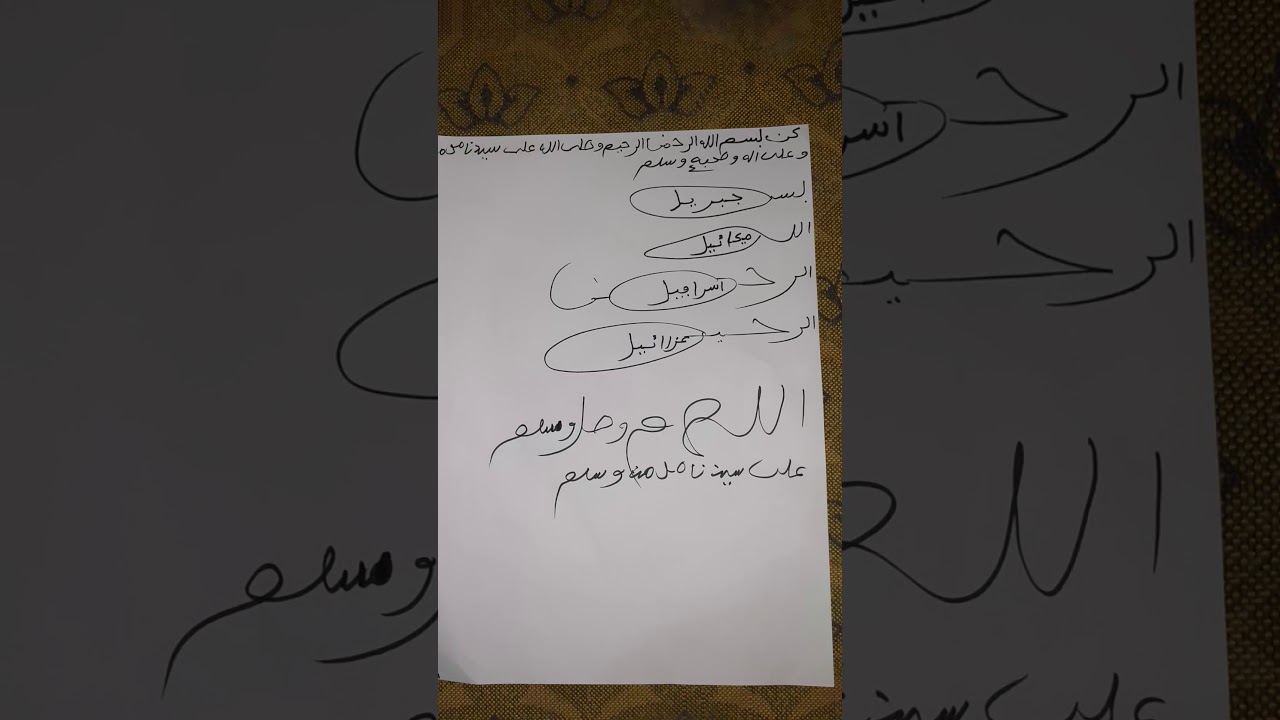 بسم الله الرحمن الرحيم وصلى الله على سيدنا محمد
وعلى اله وصحبه وسلم
بسـ جبريل
اللـ ميكائيل
الرحمـ اسرافيل ـن
الرحيـ عزرائيل
اللهم وصل وسلم
على سيدنا محمد وسلم